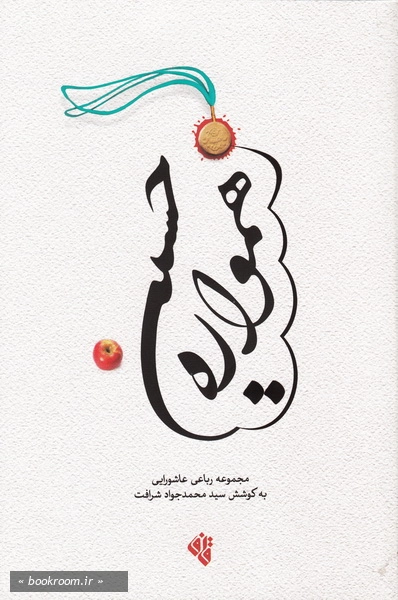 همواره حسین
مجموعه رباعی عاشورایی
به کوشش سید محمدجواد شرافت
« bookroom.ir »